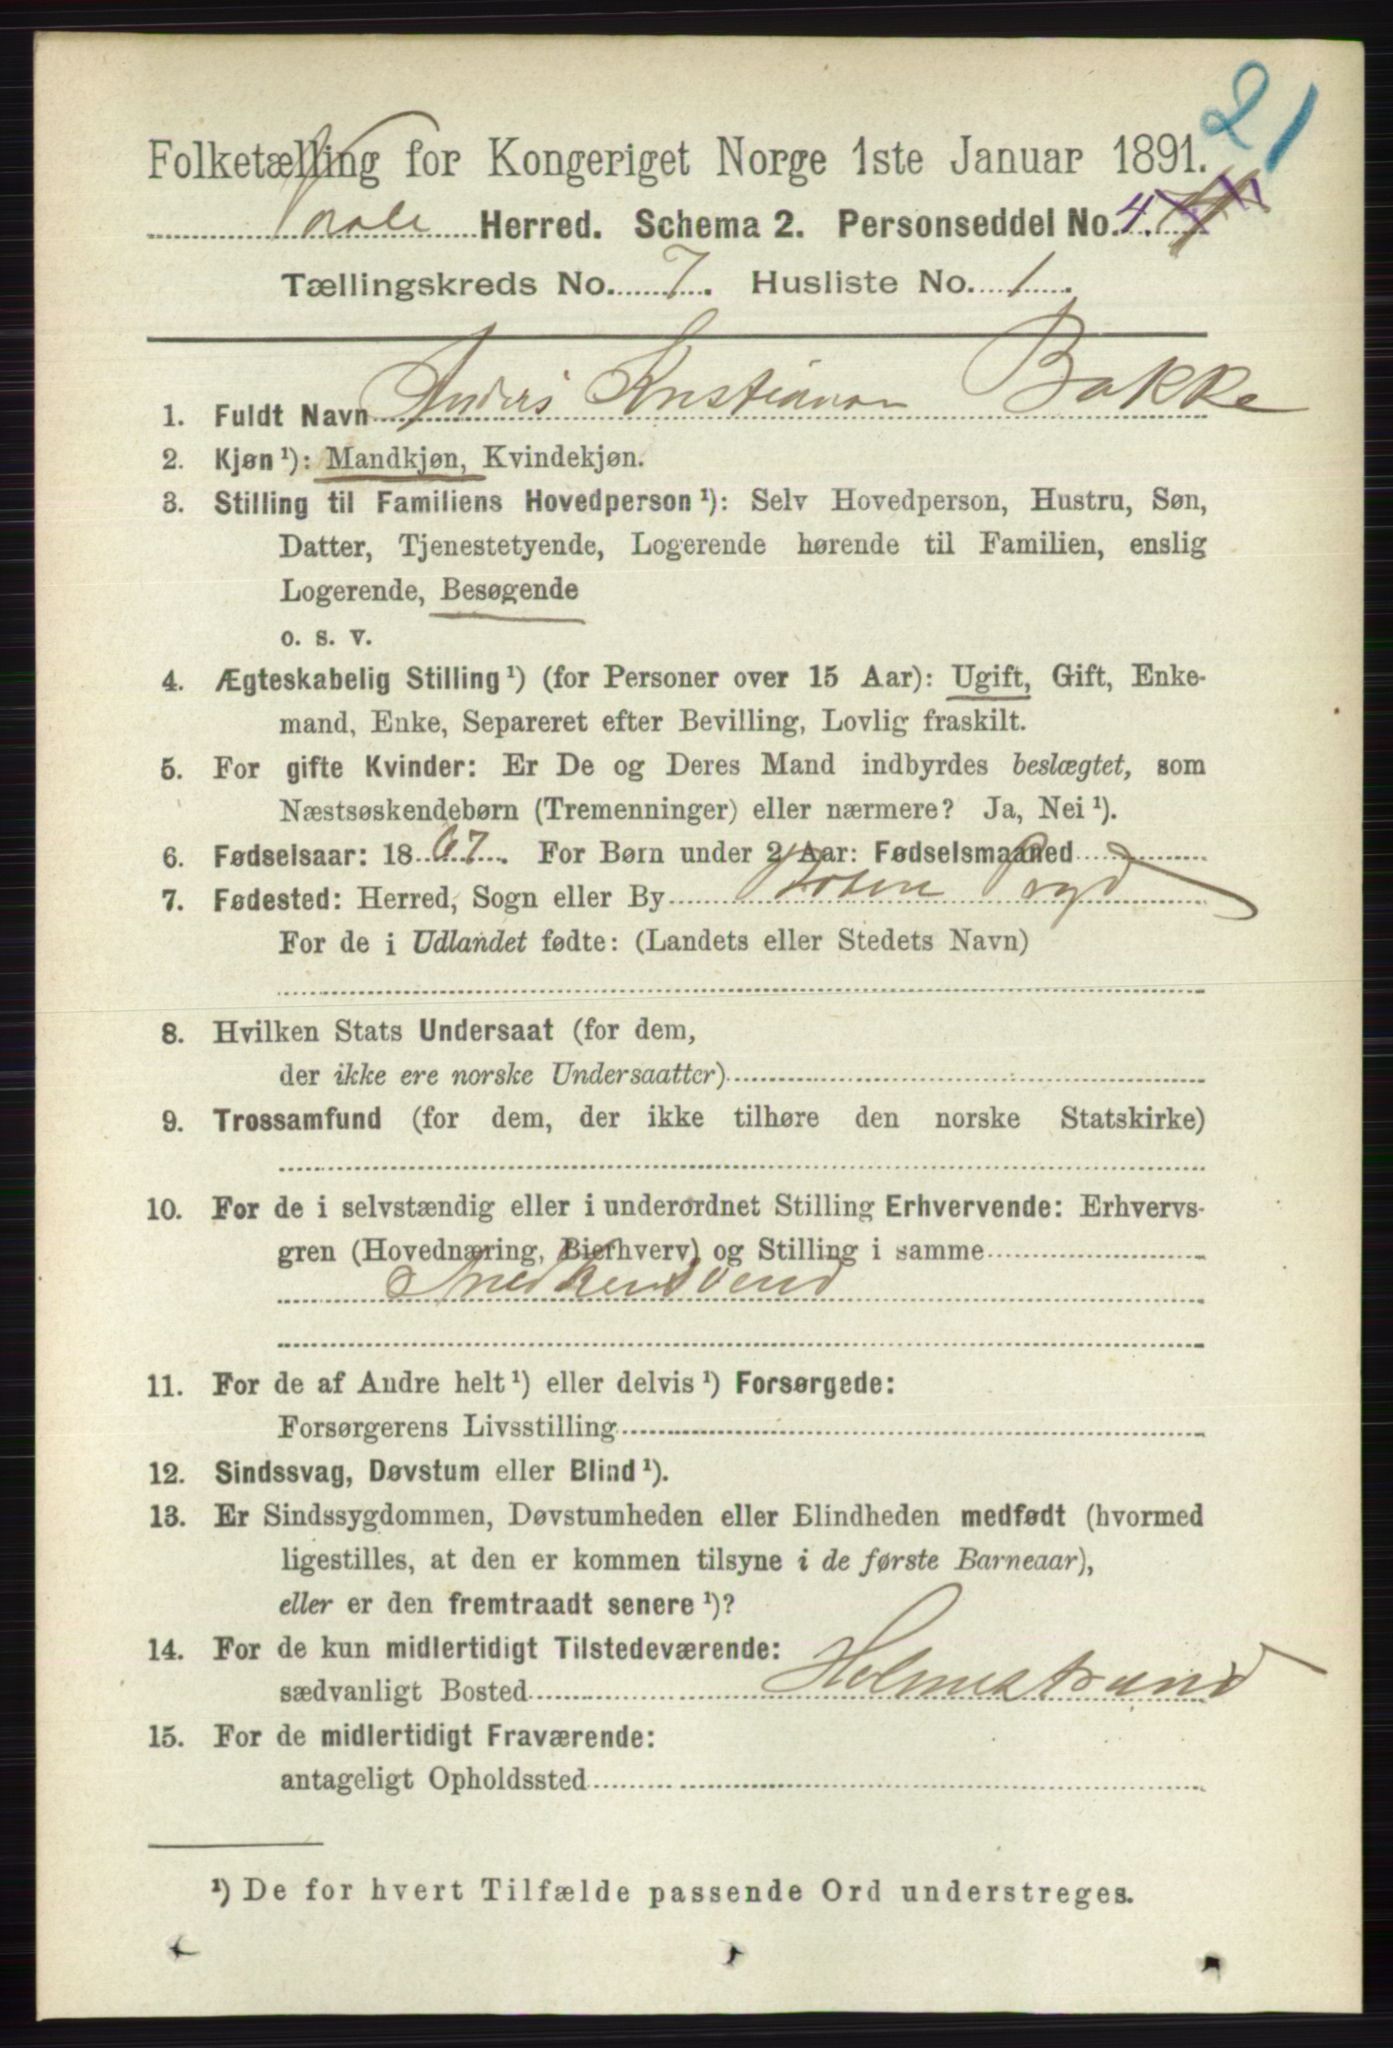 21
Folketælling for Kongeriget Norge 1ste Januar 1891.
Vaale Herred. Schema 2. Personseddel No. 4
Tællingskreds No. 7. Husliste No. 1.
1. Fuldt Navn Anders Kristianson Bakke
2. Kjøn ¹): Mandkjøn, Kvindekjøn.
3. Stilling til Familiens Hovedperson ¹): Selv Hovedperson, Hustru, Søn,
Datter, Tjenestetyende, Logerende hørende til Familien, enslig
Logerende, Besøgende
o. s. v.
4. Ægteskabelig Stilling ¹) (for Personer over 15 Aar): Ugift, Gift, Enke-
mand, Enke, Separeret efter Bevilling, Lovlig fraskilt.
5. For gifte Kvinder: Er De og Deres Mand indbyrdes beslægtet, som
Næstsøskendebørn (Tremenninger) eller nærmere? Ja, Nei ¹).
6. Fødselsaar: 1867. For Børn under 2 Aar: Fødselsmaaned
7. Fødested: Herred, Sogn eller By
For de i Udlandet fødte: (Landets eller Stedets Navn)
8. Hvilken Stats Undersaat (for dem,
der ikke ere norske Undersaatter)
9. Trossamfund (for dem, der ikke tilhøre den norske Statskirke)
10. For de i selvstændig eller i underordnet Stilling Erhvervende: Erhvervs-
gren (Hovednæring, Bierhverv) og Stilling i samme
Snedkersvend
11. For de af Andre helt ¹) eller delvis ¹) Forsørgede:
Forsørgerens Livsstilling
12. Sindssvag, Døvstum eller Blind ¹).
13. Er Sindssygdommen, Døvstumheden eller Blindheden medfødt (hvormed
ligestilles, at den er kommen tilsyne i de første Barneaar),
eller er den fremtraadt senere ¹)?
14. For de kun midlertidigt Tilstedeværende:
sædvanligt Bosted Holmestrand
15. For de midlertidigt Fraværende:
antageligt Opholdssted
¹) De for hvert Tilfælde passende Ord understreges.